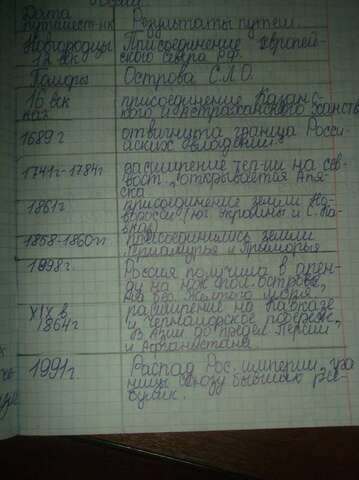 Дата путешест-ик Результаты путеш.
Новгородцы Присоединение европей-
12 век ского севера РФ.
Поморы Острова С.Л.О.
16 век присоединение Казанс-
кого и Астраханского ханств
1689 г отвигнута граница Росси-
йских владений.
1741г-1784г расширение тер-ии на сев-
вост., открывается Аля-
ска
1861г присоединение земли Но-
вороси (юг Украины и С. Ка-
вказ)
1858-1860гг присоединились земли
Приамурья и Приморья
1898г. Россия получила в арен-
ду на юж. пол. острова,
на бер. Желтого моря
XIX в расширение на Кавказе
1864г и черномарское побереж,
в Азии до предел Персии
и Афганистана.
1991г. Распад Рос. империи, гра
ницы союзу бывших рес-
бублик.